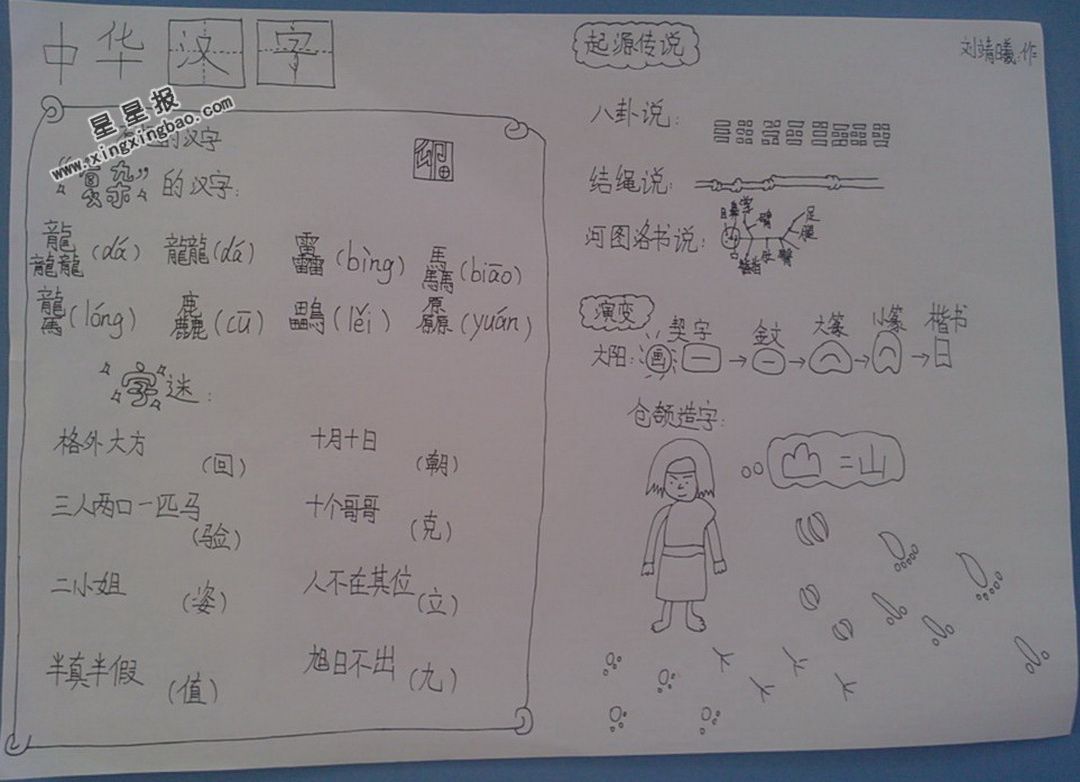 中华汉字
星星报
www.xingxingbao.com
的汉字
的汉字:
龘(dá) 龖(dá) (bìng) 驫(biāo)
(lóng) 麤(cū) (lěi) 厵(yuán)
字迷:
格外大方 (回)
十月十日 (朝)
三人两口一匹马 (验)
十个哥哥 (克)
二小姐 (姿)
人不在其位 (立)
半真半假 (值)
旭日不出 (九)
起源传说
刘靖曦 作
八卦说:
结绳说:
河图洛书说:
足
腿
臂
演变
契字 金文 大篆 小篆 楷书
太阳: 画 → → → → 日
仓颉造字:
=山